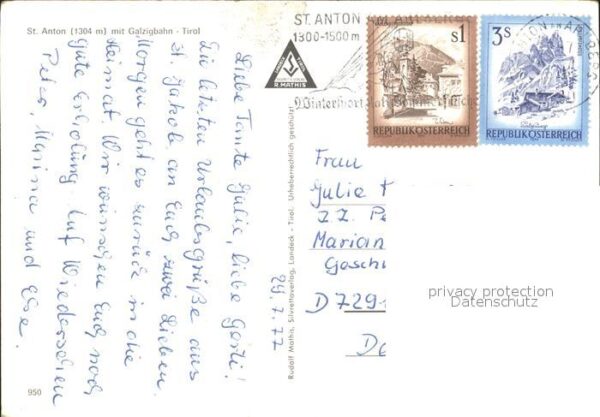 St. Anton (1304 m) mit Galzigbahn - Tirol
Liebe Tante Julie, liebe Gerti!
Die letzten Urlaubsgrüße aus
St. Jakob an Euch zwei Lieben.
Morgen geht es zurück in die
Heimat. Wir wünschen Euch noch
gute Erholung. Auf Wiedersehen
Peter, Marina und Else.
29.7.77
950
Rudolf Mathis, Silvrettaverlag, Landeck - Tirol. Urheberrechtlich geschützt
R. MATHIS
ST. ANTON AM ARLBERG
1300-1500 m
S1
REPUBLIK ÖSTERREICH
3S
REPUBLIK ÖSTERREICH
Frau
Julie
z.Z.
Marian
Gesch
D 729
privacy protection
Datenschutz